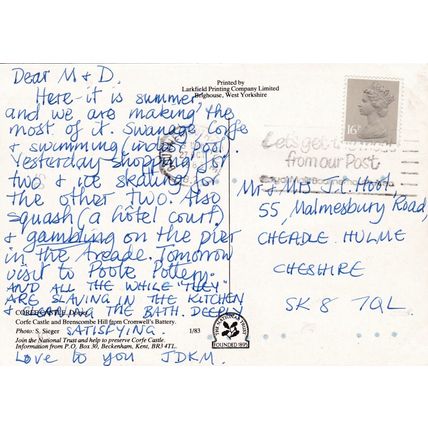 Dear M & D.
Here it is summer
and we are making the
most of it. Swanage, Corfe
& swimming (indoor pool.
Yesterday shopping for
two & ice skating for
the other two. Also
squash (a hotel court)
& gambling on the pier
in the arcade. Tomorrow
visit to Poole Pottery.
AND ALL THE WHILE "THEY"
ARE SLAVING IN THE KITCHEN
& CLEANING THE BATH. DEEPLY
SATISFYING.
Love to you JDKM.
Printed by
Larkfield Printing Company Limited
Brighouse, West Yorkshire
16P
Let's get
from our Post
Mr & Mrs J.C. Hoot,
55, Malmesbury Road,
CHEADLE HULME
CHESHIRE
SK8 7QL.
CORFE CASTLE,
Corfe Castle and Brenscombe Hill from Cromwell's Battery.
Photo: S. Sieger 1/83
Join the National Trust and help to preserve Corfe Castle.
Information from P.O. Box 30, Beckenham, Kent, BR3 4TL.
THE NATIONAL TRUST
FOUNDED 1895